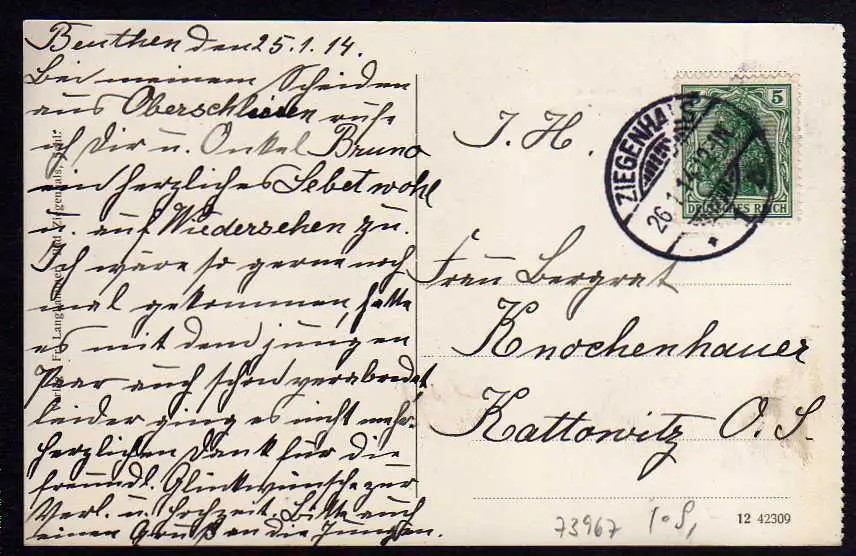 Beuthen den 25.1.14.
Bei meinem Scheiden
aus Oberschlesien rufe
ich Dir u. Onkel Bruno
ein herzliches Lebet wohl
u. auf Wiedersehen zu.
Ich wäre so gerne noch
mal gekommen, hatte
es mit dem jungen
Paar auch schon verabredet,
leider ging es nicht mehr.
herzlichen Dank für die
freundl. Glückwünsche zur
Verl. u. Hochzeit. Bitte auch
einen Gruß an die Jungen.
Fr. Lang Bad Ziegenhals,
I. H.
Frau Bergrat
Knochenhauer
Kattowitz O. S.
5
DEUTSCHES REICH
ZIEGENHALS
26.1.14.12-1N.
73967
12 42309